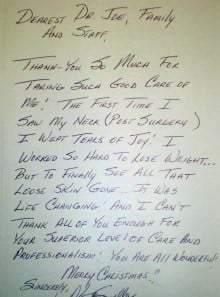 Dearest Dr. Joe, Family
And Staff,
Thank-You So Much For
Taking Such Good Care of
Me! The First Time I
Saw My Neck (Post Surgery)
I Wept Tears of Joy! I
Worked So Hard To Lose Weight...
But To Finally See All That
Loose Skin Gone... It Was
Life Changing! And I Can't
Thank All of You Enough For
Your Superior Level of Care And
Professionalism! You Are All Wonderful!
Merry Christmas!!
Sincerely,